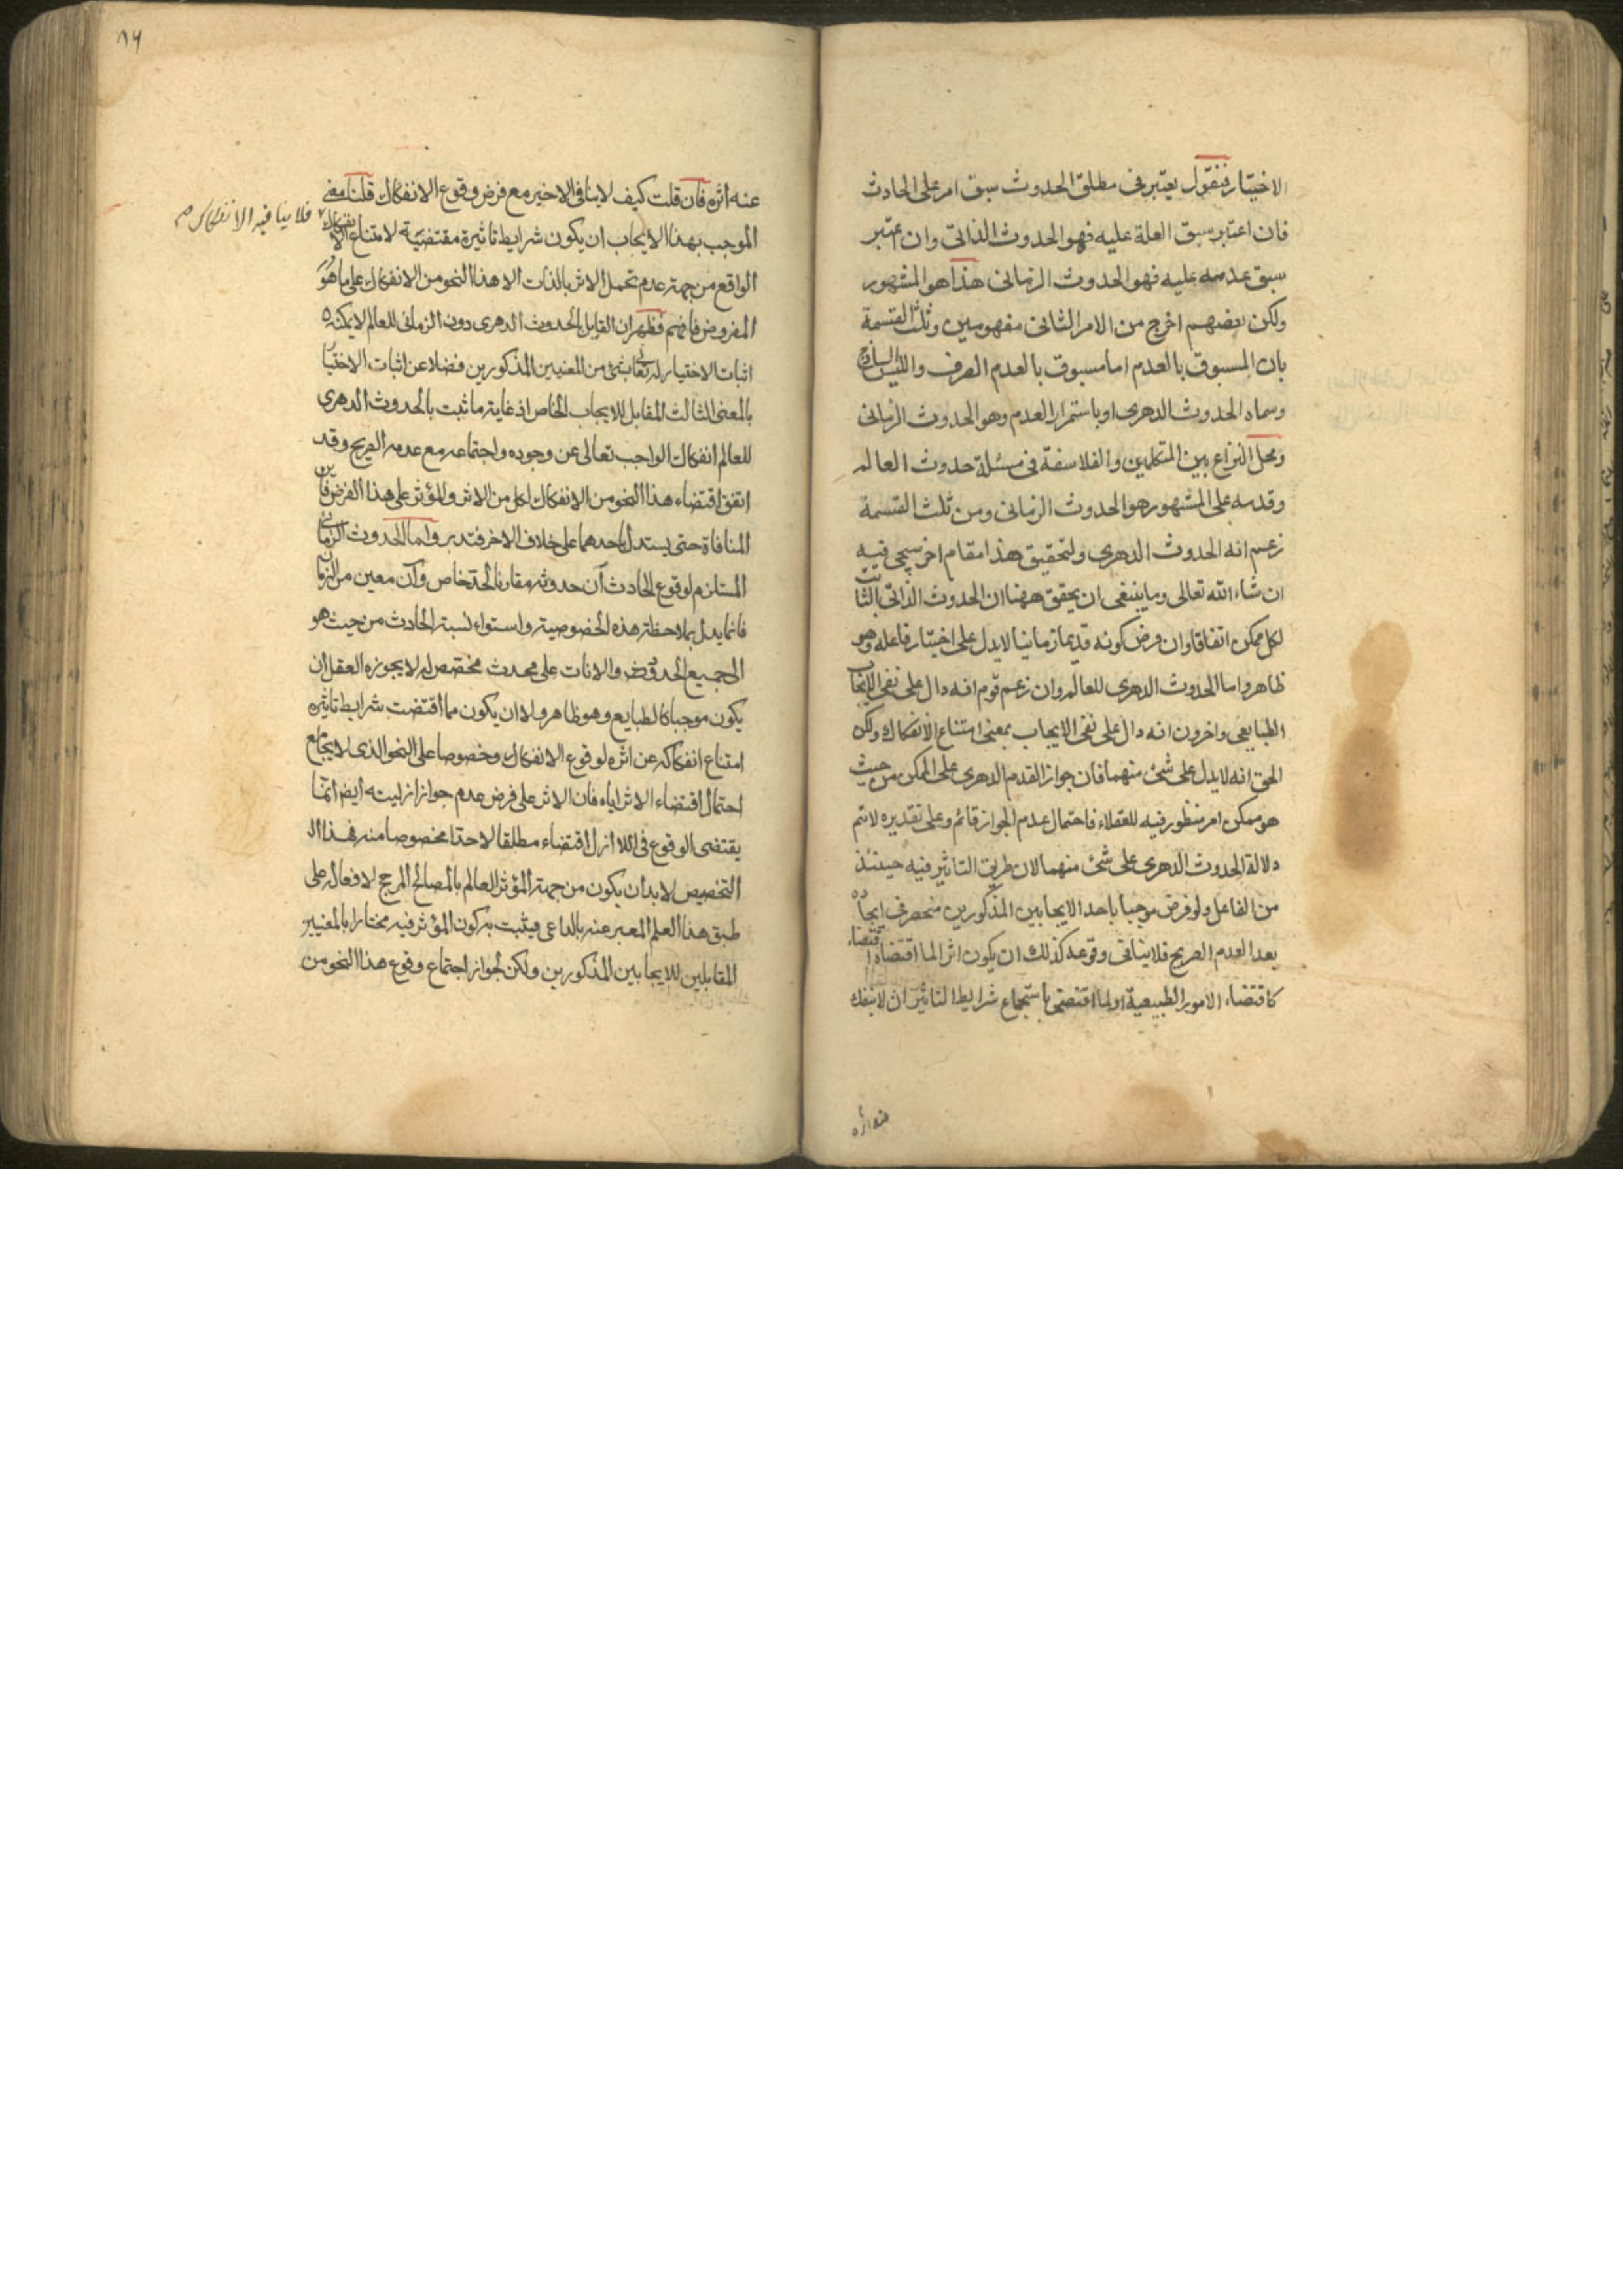 الاختيار فنقول يعتبر فى مطلق الحدوث سبق امر على الحادث
فان اعتبر سبق العلة عليه فهو الحدوث الذاتى وان اعتبر
سبق عدمه عليه فهو الحدوث الزمانى هذا هو المشهور
ولكن بعضهم اخرج من الامر الثانى مفهومين وثلث القسمة
بان المسبوق بالعدم اما مسبوق بالعدم الصرف والليس الساذج
وسماه الحدوث الدهرى او باستمرار العدم وهو الحدوث الزمانى
ومحل النزاع بين المتكلمين والفلاسفة فى مسئلة حدوث العالم
وقدمه على المشهور هو الحدوث الزمانى ومن ثلث القسمة
زعم انه الحدوث الدهرى ولتحقيق هذا مقام اخر سيجئ فيه
ان شاء الله تعالى وما ينبغى ان يحقق ههنا ان الحدوث الذاتى الثابت
لكل ممكن اتفاقا وان فرض كونه قديما زمانيا لا يدل على اختيار فاعله وهو
ظاهر واما الحدوث الدهرى للعالم وان زعم قوم انه دال على نفى الايجاب
الطبايعى واخرون انه دال على نفى الايجاب بمعنى امتناع الانفكاك ولكن
الحق انه لا يدل على شئ منهما فان جواز القدم الدهرى على الممكن من حيث
هو ممكن امر منظور فيه للعقلاء فاحتمال عدم الجواز قائم وعلى تقديره لا يتم
دلالة الحدوث الدهرى على شئ منهما لان طريق التاثير فيه حينئذ
من الفاعل ولو فرض موجبا باحد الايجابين المذكورين منحصر فى ايجاده
بعد العدم الصريح فلا ينافى وقوعه كذلك ان يكون اثرا لما اقتضاه اقتضاء
كاقتضاء الامور الطبيعية او لما اقتضى باستجماع شرايط التاثير ان لا ينفك
عنه اثره
عنه اثره فان قلت كيف لا ينافى الاخير مع فرض وقوع الانفكاك قلنا معنى
الموجب بهذا الايجاب ان يكون شرايط تاثيره مقتضية لامتناع الانفكاك
فلا ينافيه الانفكاك
الواقع من جهة عدم تحمل الاثر بالذات الا هذا النحو من الانفكاك على ما هو
المفروض فافهم فظهر ان القايل بالحدوث الدهرى دون الزمانى للعالم لا يمكنه
اثبات الاختيار له تعالى بشئ من المعنيين المذكورين فضلا عن اثبات الاختيار
بالمعنى الثالث المقابل للايجاب الخاص اذ غاية ما ثبت بالحدوث الدهرى
للعالم انفكاك الواجب تعالى عن وجوده واجتماعه مع عدمه الصريح وقد
اتفق اقتضاء هذا النحو من الانفكاك لكل من الاثر والمؤثر على هذا الفرض فاين
المنافاة حتى يستدل باحدهما على خلاف الاخر فتدبر واما الحدوث الزمانى
المستلزم لوقوع الحادث آن حدوثه مقارنا لحد خاص وآن معين من الزمان
فانما يدل بملاحظة هذه الخصوصية واستواء نسبة الحادث من حيث هو
الى جميع الحدود والانات على محدث مخصص له لا يجوزه العقل ان
يكون موجبا كالطبايع وهو ظاهر ولا ان يكون مما اقتضت شرايط تاثيره
امتناع انفكاكه عن اثره لوقوع الانفكاك وخصوصا على النحو الذى لا يجامع
احتمال اقتضاء الاثر اياه فان الاثر على فرض عدم جواز ازليته ايضا انما
يقتضى الوقوع فى اللا ازل اقتضاء مطلقا لا حدا مخصوصا منه فهذا
التخصيص لا بد ان يكون من جهة المؤثر العالم بالمصالح المرجح لافعاله على
طبق هذا العلم المعبر عنه بالداعى فيثبت به كون المؤثر فيه مختارا بالمعنيين
المقابلين للايجابين المذكورين ولكن لجواز اجتماع وقوع هذا النحو من